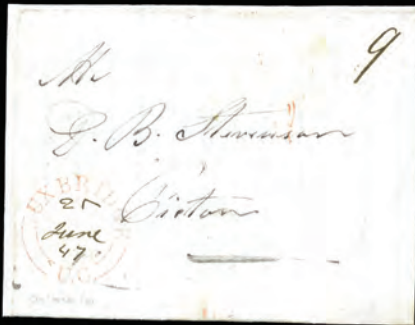 9
Mr
D. B. Stevenson
Picton
UXBRIDGE
25
June
47
U.C.